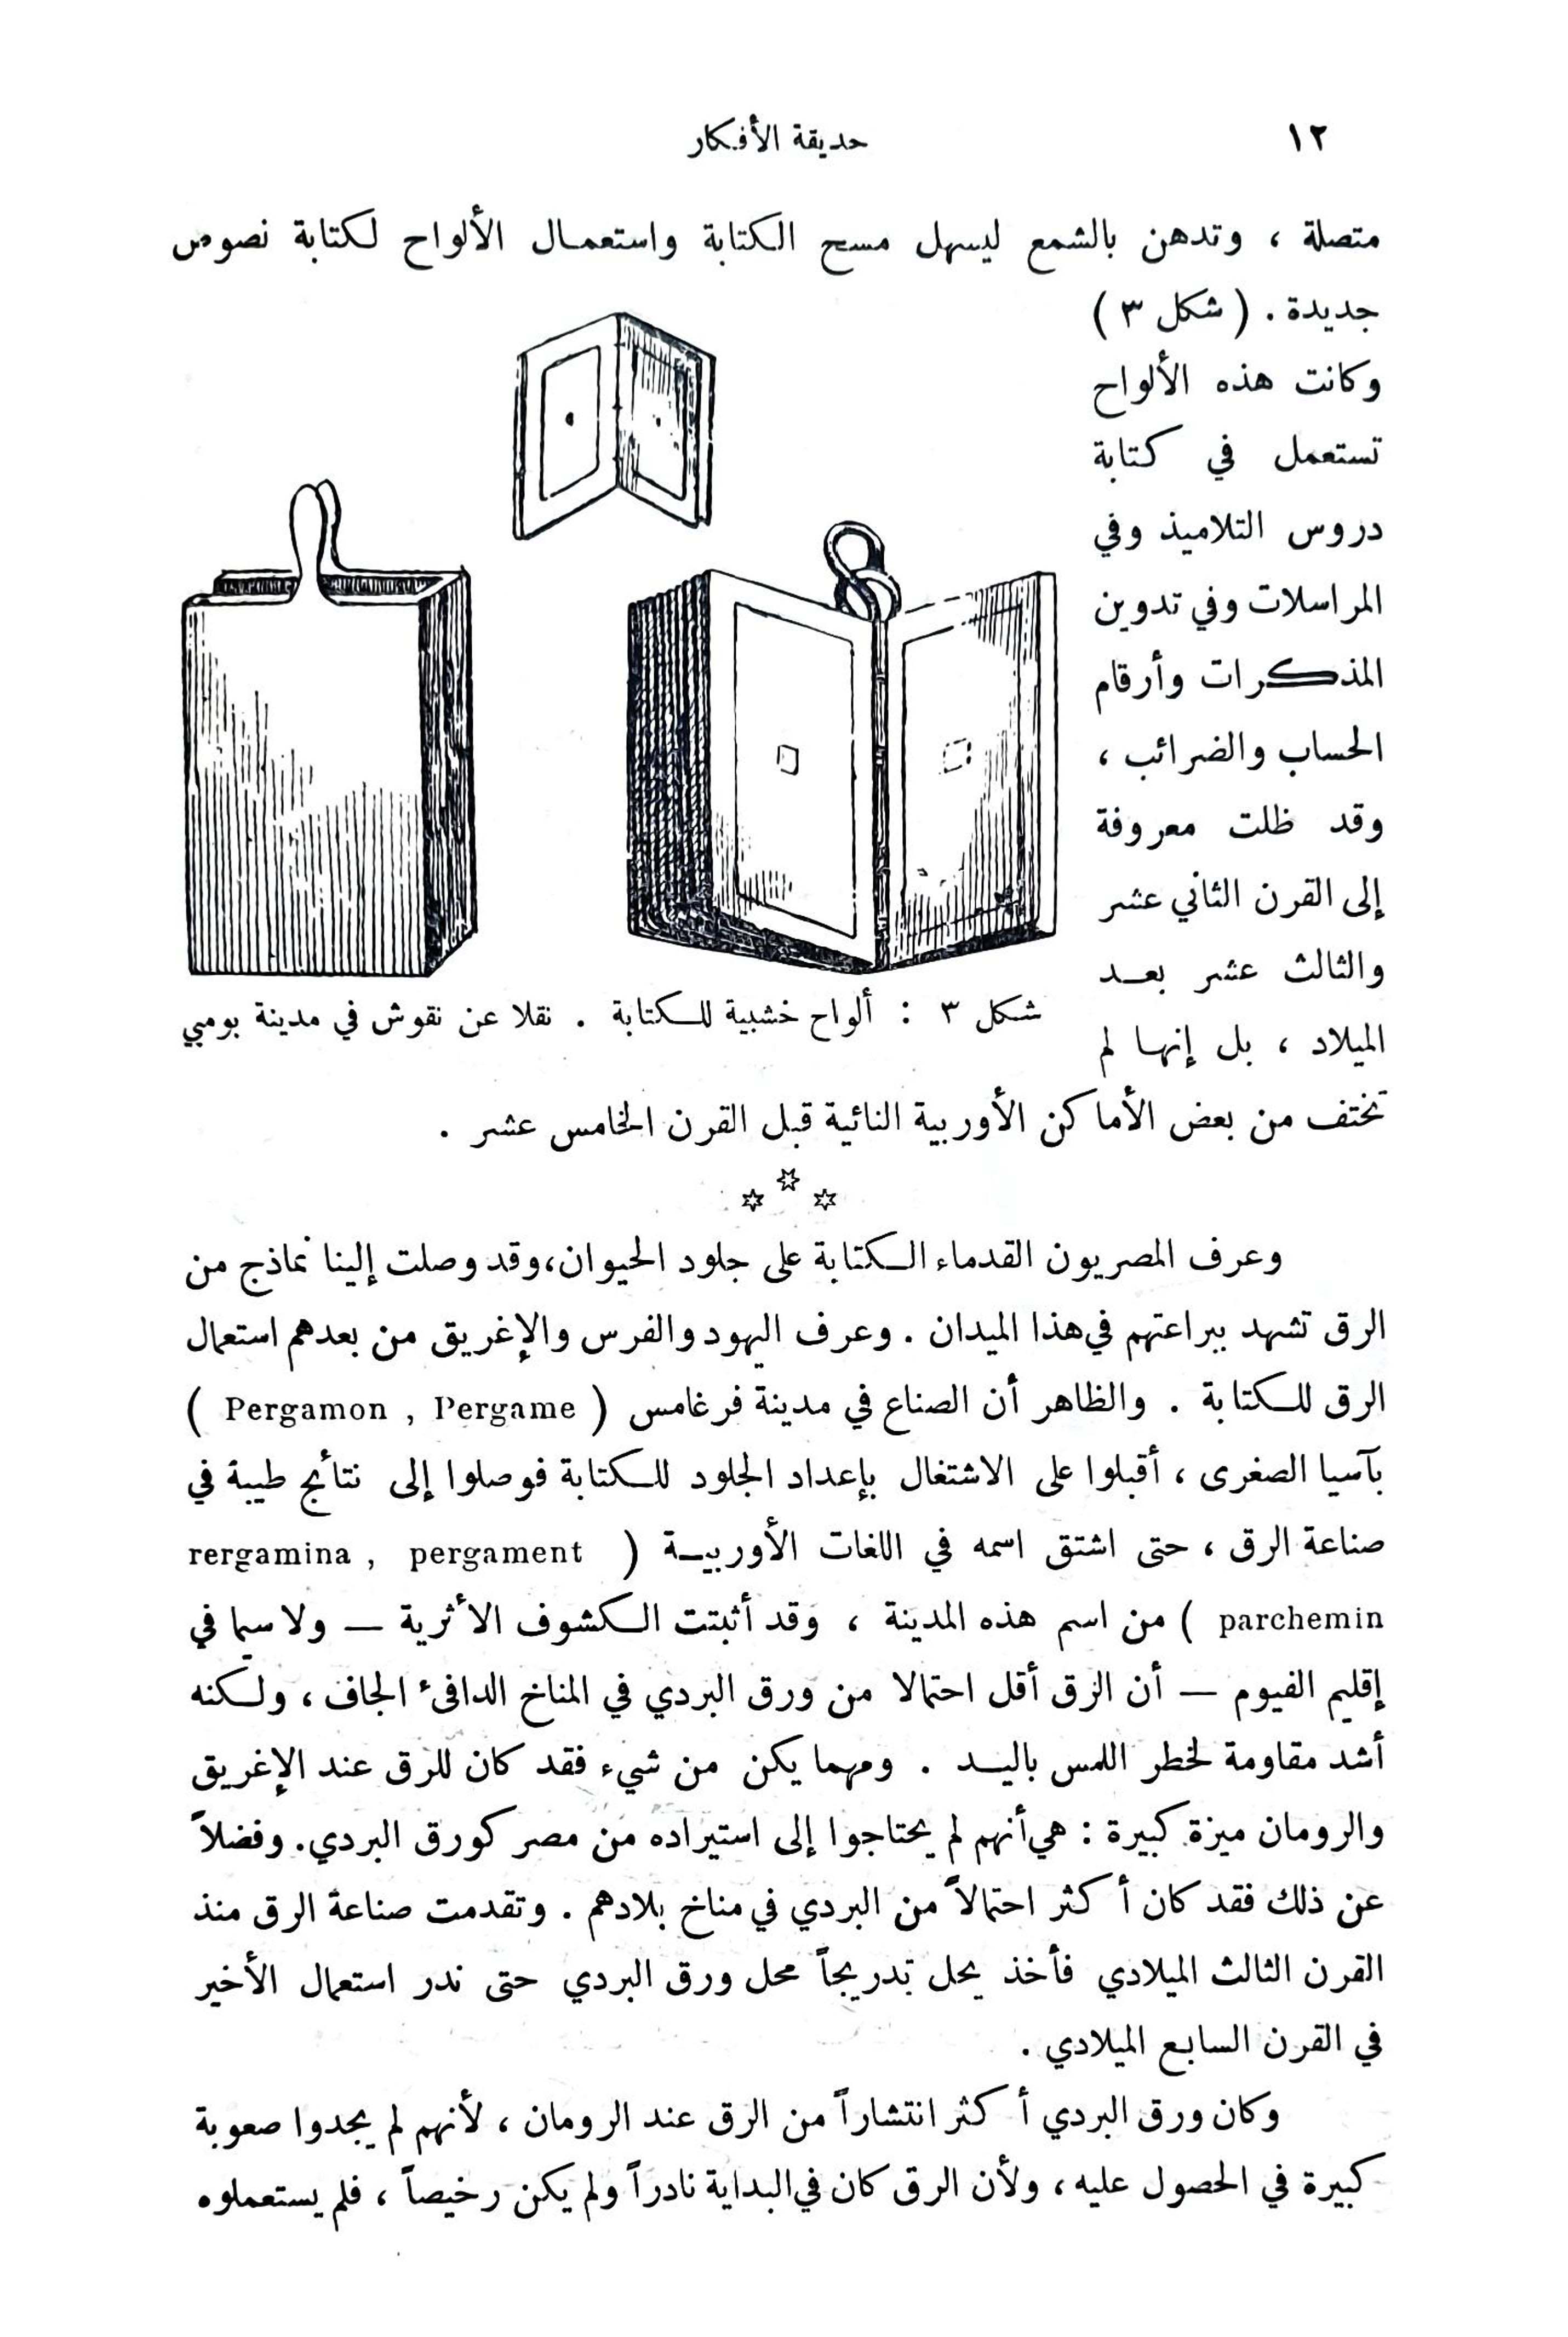 ١٢
حديقة الأفكار
متصلة ، وتدهن بالشمع ليسهل مسح الكتابة واستعمال الألواح لكتابة نصوص
جديدة . ( شكل ٣ )
وكانت هذه الألواح
تستعمل في كتابة
دروس التلاميذ وفي
المراسلات وفي تدوين
المذكرات وأرقام
الحساب والضرائب ،
وقد ظلت معروفة
إلى القرن الثاني عشر
والثالث عشر بعد
الميلاد ، بل إنها لم
شكل ٣ : ألواح خشبية للكتابة . نقلا عن نقوش في مدينة بومبي
تختف من بعض الأماكن الأوربية النائية قبل القرن الخامس عشر .
وعرف المصريون القدماء الكتابة على جلود الحيوان ، وقد وصلت إلينا نماذج من
الرق تشهد ببراعتهم في هذا الميدان . وعرف اليهود والفرس والإغريق من بعدهم استعمال
الرق للكتابة . والظاهر أن الصناع في مدينة فرغامس ( Pergamon , Pergame )
بآسيا الصغرى ، أقبلوا على الاشتغال بإعداد الجلود للكتابة فوصلوا إلى نتائج طيبة في
صناعة الرق ، حتى اشتق اسمه في اللغات الأوربية ( rergamina , pergament
parchemin ) من اسم هذه المدينة ، وقد أثبتت الكشوف الأثرية — ولا سيما في
إقليم الفيوم — أن الرق أقل احتمالا من ورق البردي في المناخ الدافىء الجاف ، ولكنه
أشد مقاومة لخطر اللمس باليد . ومهما يكن من شيء فقد كان للرق عند الإغريق
والرومان ميزة كبيرة : هي أنهم لم يحتاجوا إلى استيراده من مصر كورق البردي . وفضلاً
عن ذلك فقد كان أكثر احتمالاً من البردي في مناخ بلادهم . وتقدمت صناعة الرق منذ
القرن الثالث الميلادي فأخذ يحل تدريجاً محل ورق البردي حتى ندر استعمال الأخير
في القرن السابع الميلادي .
وكان ورق البردي أكثر انتشاراً من الرق عند الرومان ، لأنهم لم يجدوا صعوبة
كبيرة في الحصول عليه ، ولأن الرق كان في البداية نادراً ولم يكن رخيصاً ، فلم يستعملوه